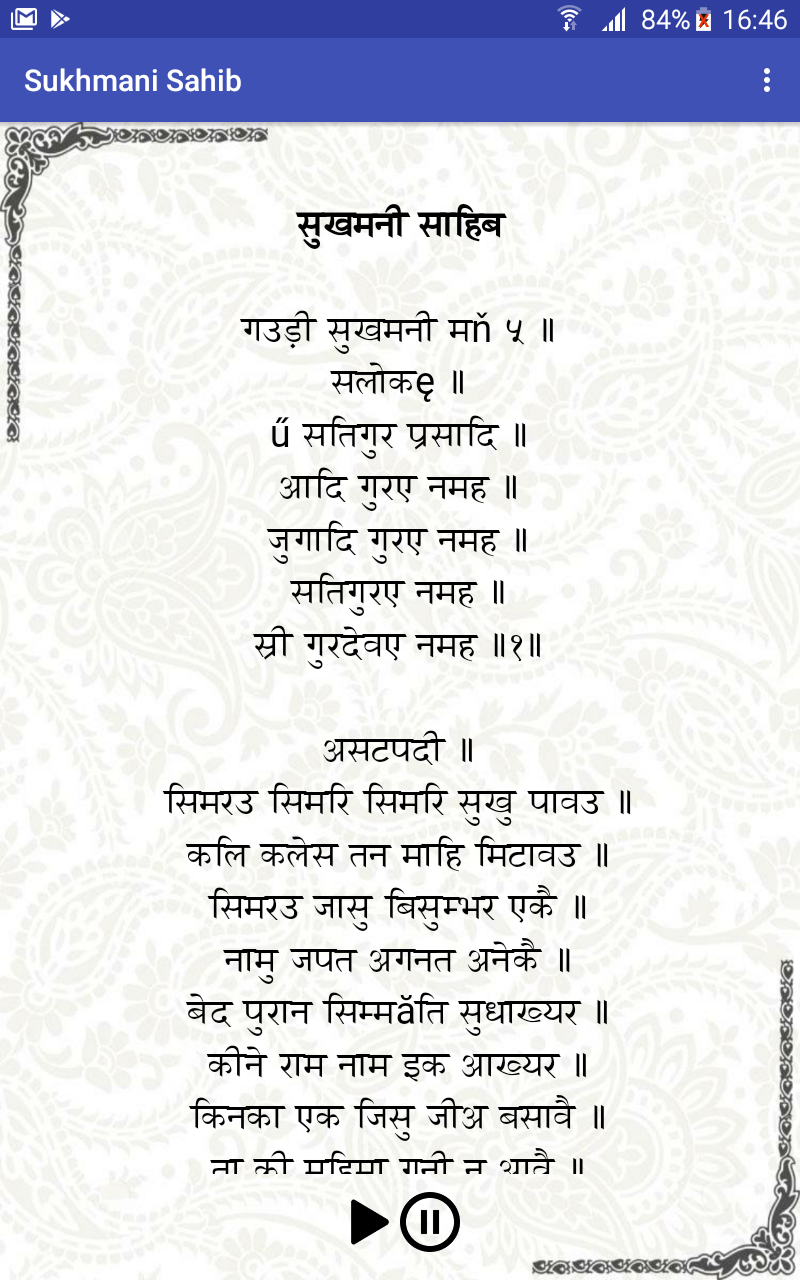 84% 16:46
Sukhmani Sahib
सुखमनी साहिब
गउड़ी सुखमनी मň ५ ॥
सलोकę ॥
ű सतिगुर प्रसादि ॥
आदि गुरए नमह ॥
जुगादि गुरए नमह ॥
सतिगुरए नमह ॥
स्री गुरदेवए नमह ॥१॥
असटपदी ॥
सिमरउ सिमरि सिमरि सुखु पावउ ॥
कलि कलेस तन माहि मिटावउ ॥
सिमरउ जासु बिसुम्भर एकै ॥
नामु जपत अगनत अनेकै ॥
बेद पुरान सिम्मăति सुधाख्यर ॥
कीने राम नाम इक आख्यर ॥
किनका एक जिसु जीअ बसावै ॥
ता की महिमा गनी न आवै ॥